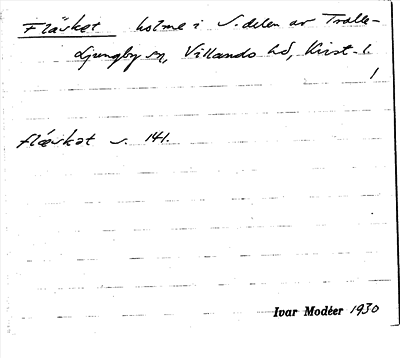 Fläsket holme i S. delen av Trolle-
Ljungby sn, Villands hd, Krist. l.
1
flæskət s. 141.
Ivar Modéer 1930